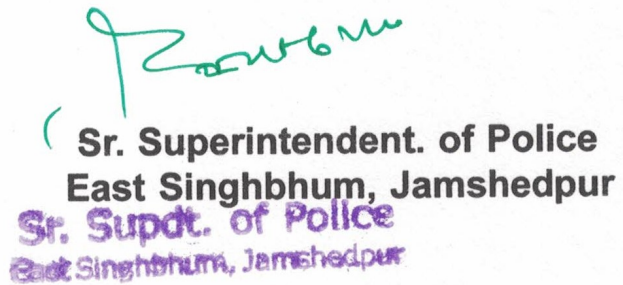 Sr. Superintendent. of Police
East Singhbhum, Jamshedpur
Sr. Supdt. of Police
East Singhbhum, Jamshedpur